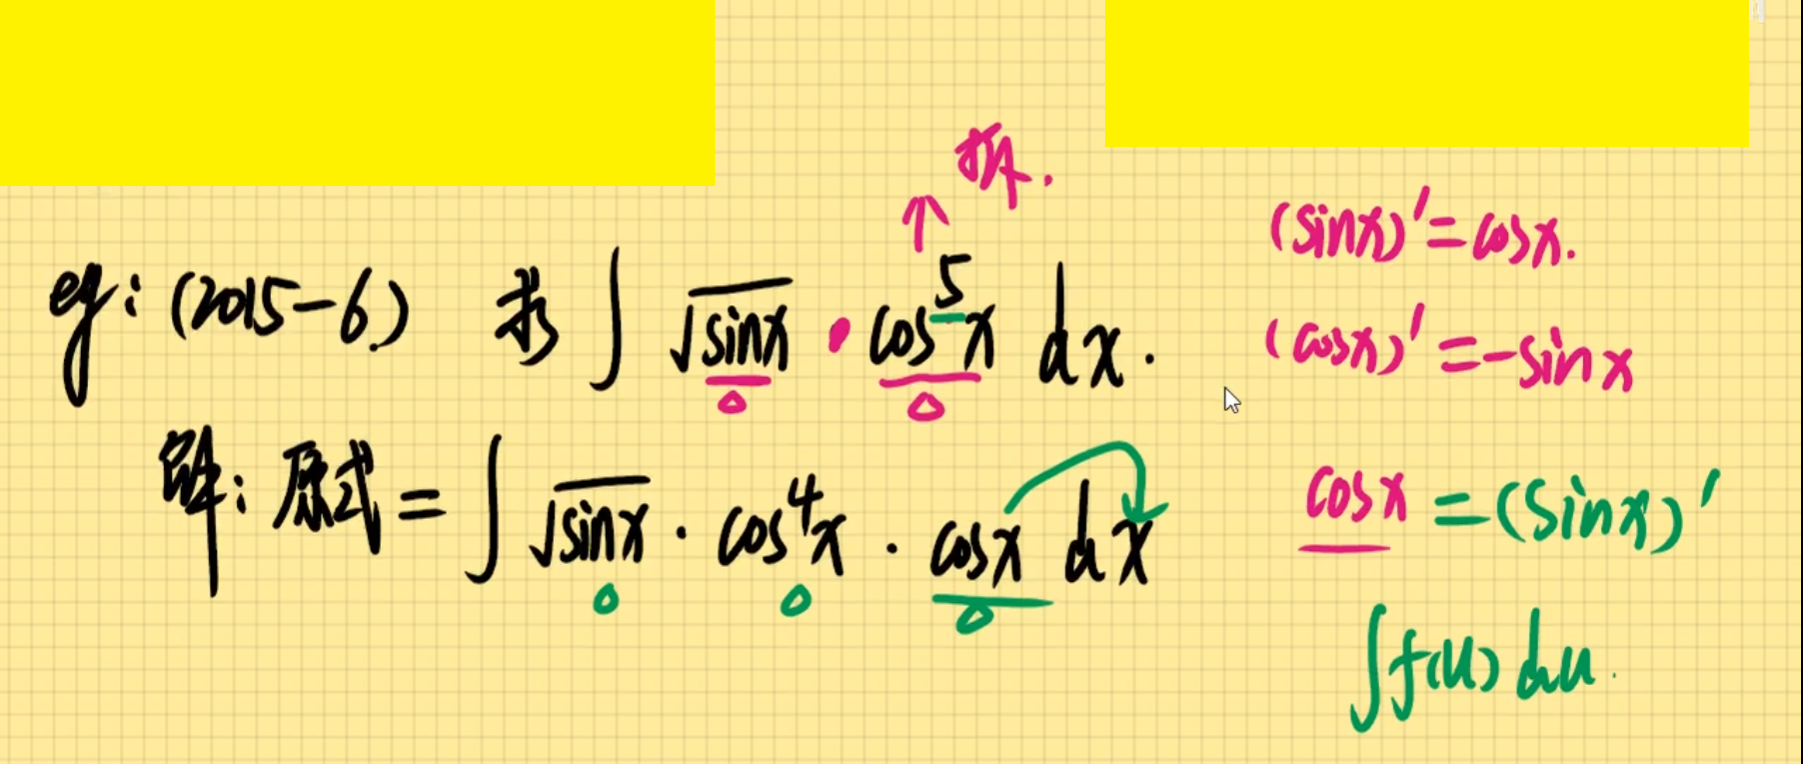 拆.
eg: (2015-6.) 求 ∫ √sinx · cos⁵x dx.
(sinx)′=cosx.
(cosx)′=-sinx
解: 原式 = ∫ √sinx · cos⁴x · cosx dx
cosx =(sinx)′
∫f(u) du.